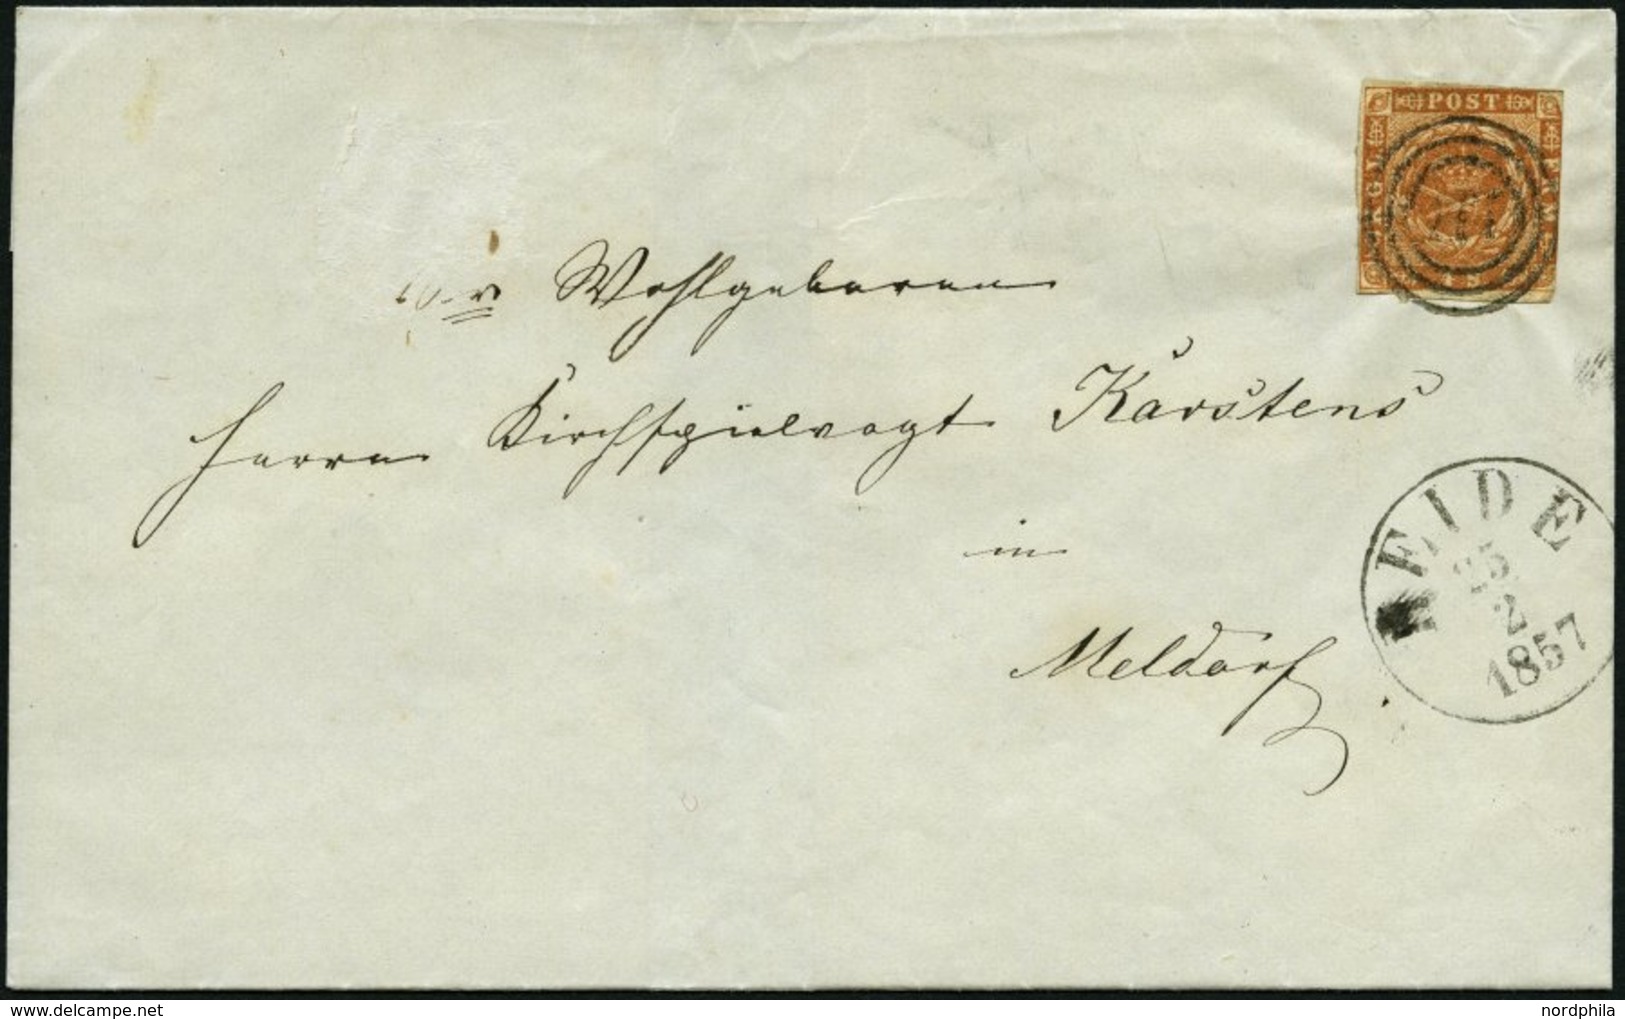 POST
FRM
Sr Wohlgeboren
Herrn Kirchspielvogt Karstens
in
Meldorf
HEIDE
25
2
1857
nordphila | delcampe.net